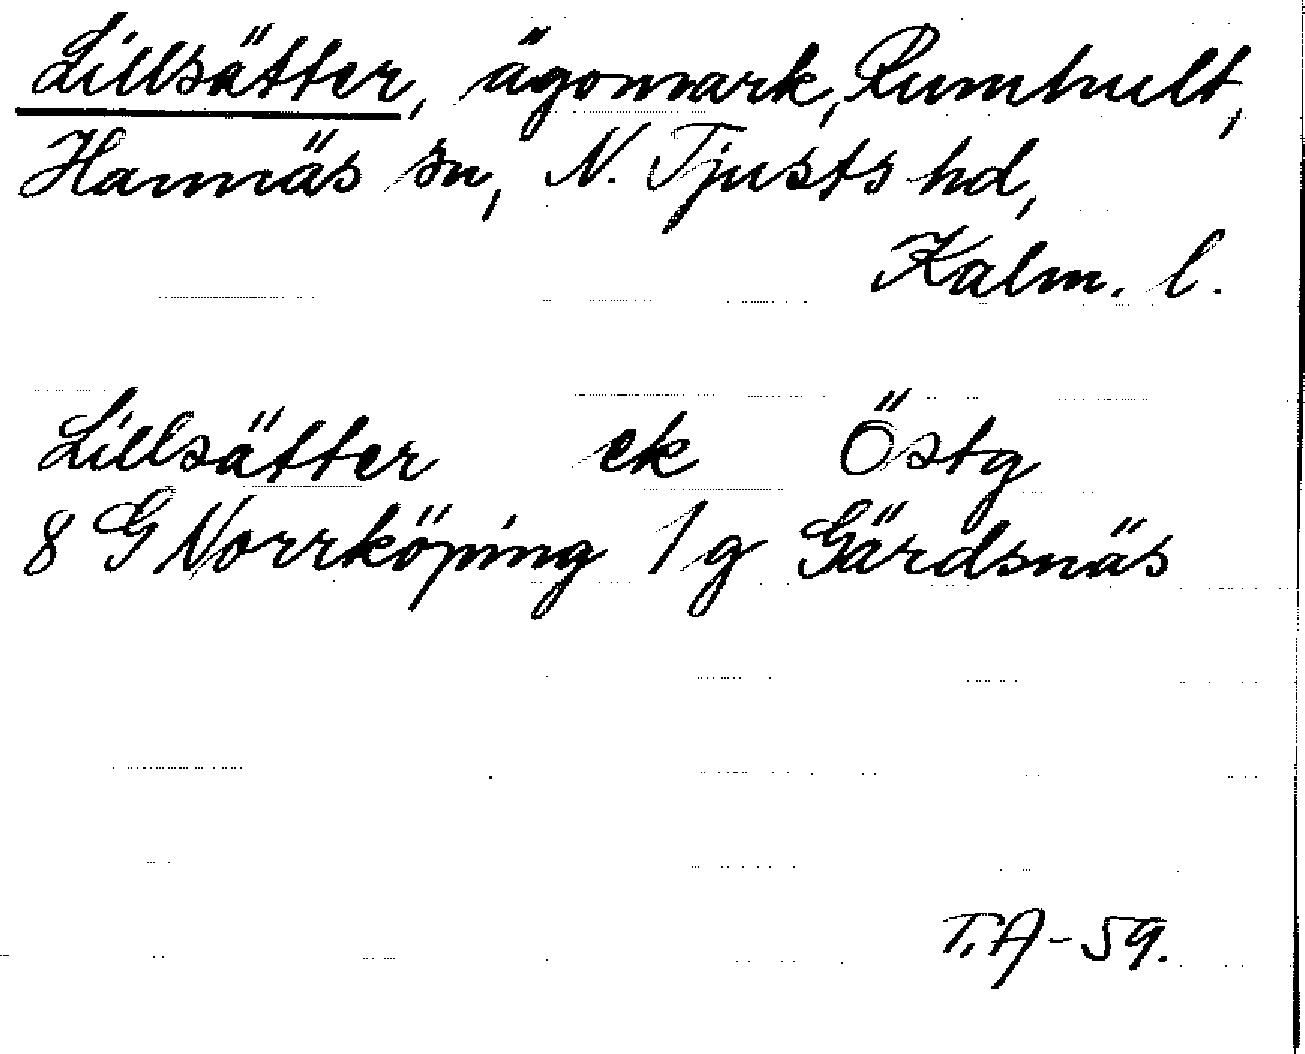 Lillsätter, ägomark, Rumhult,
Hannäs sn, N. Tjusts hd,
Kalm. l.
Lillsätter ek Östg
8 G Norrköping 1 g Gärdsnäs
T.A-59.